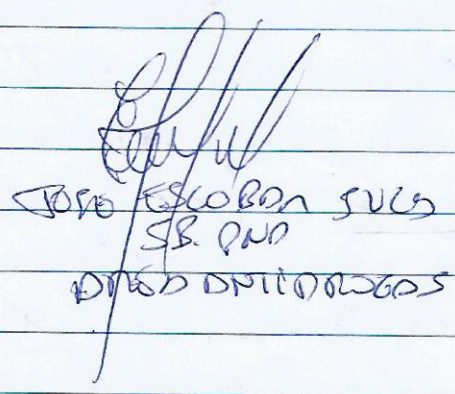 JOSE ESCOBAR
SB. PNP
AREA ANTIDROGAS